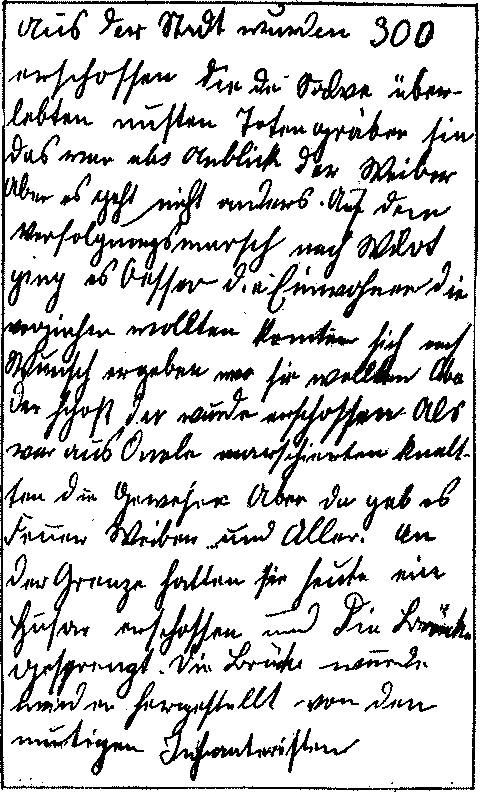 Aus der Stadt wurden 300
erschossen die die Salve über-
lebten musten Totengräber sein
das war ein Anblick der Weiber
Aber es geht nicht anders. Auf dem
Verfolgungsmarsch nach Wilot
ging es besser die Einwohner die
verziehen wollten konnten sich nach
Wunsch ergeben wo sie wollten Aber
der schoß der wurde erschossen Als
wir aus Owele marschierten knall-
ten die Gewehre Aber da gab es
Feuer Weiber und Alles. An
der Grenze hatten sie heute ein
Husar erschossen und Die Brücke
gesprengt. Die Brücke wurde
wieder hergestellt von den
mutigen Infanteristen